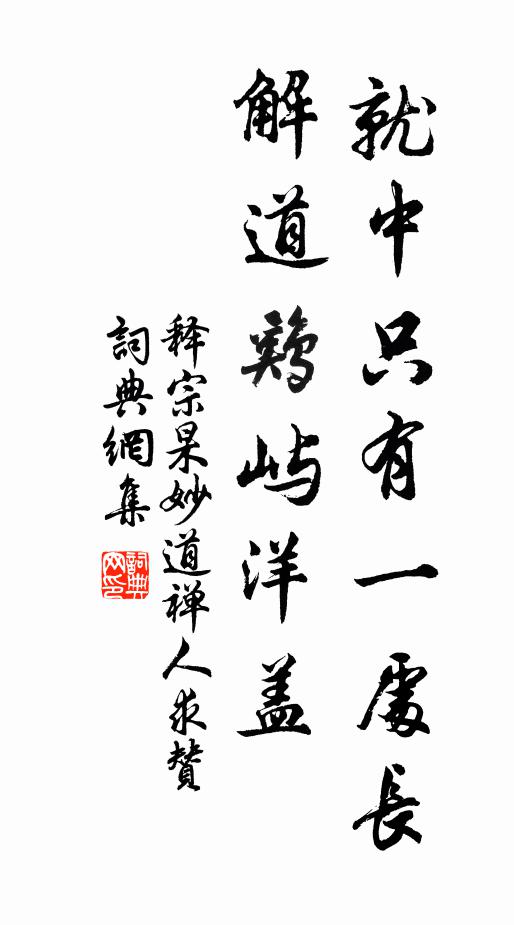 就中只有一處長
解道鷄屿洋盖
释宗杲妙道禅人求贊
詞典網集
詞典
网印